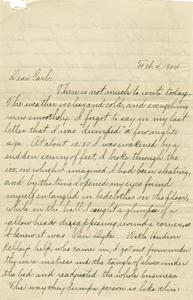 Feb. 4, 1904
Dear Carl:
There is not much to write today.
The weather is clear and cold, and everything
runs smoothly. I forgot to say in my last
letter that I was "dumped" a few nights
ago. At about 10:30 I was awakened by a
sudden scurry of feet. I broke through the
ice, on which I imagined I had been skating,
and by the time I opened my eyes found
myself entangled in bedclothes on the floor,
while in the hall I caught a glimpse of a
yellow head disappearing around a corner, so
I knew it was Van Slyke. With
Kelley's help, who came in, I got out from under
the wire mattress and the tangle of shoes under
the bed and readjusted the whole business.
The way they dump a person is like this